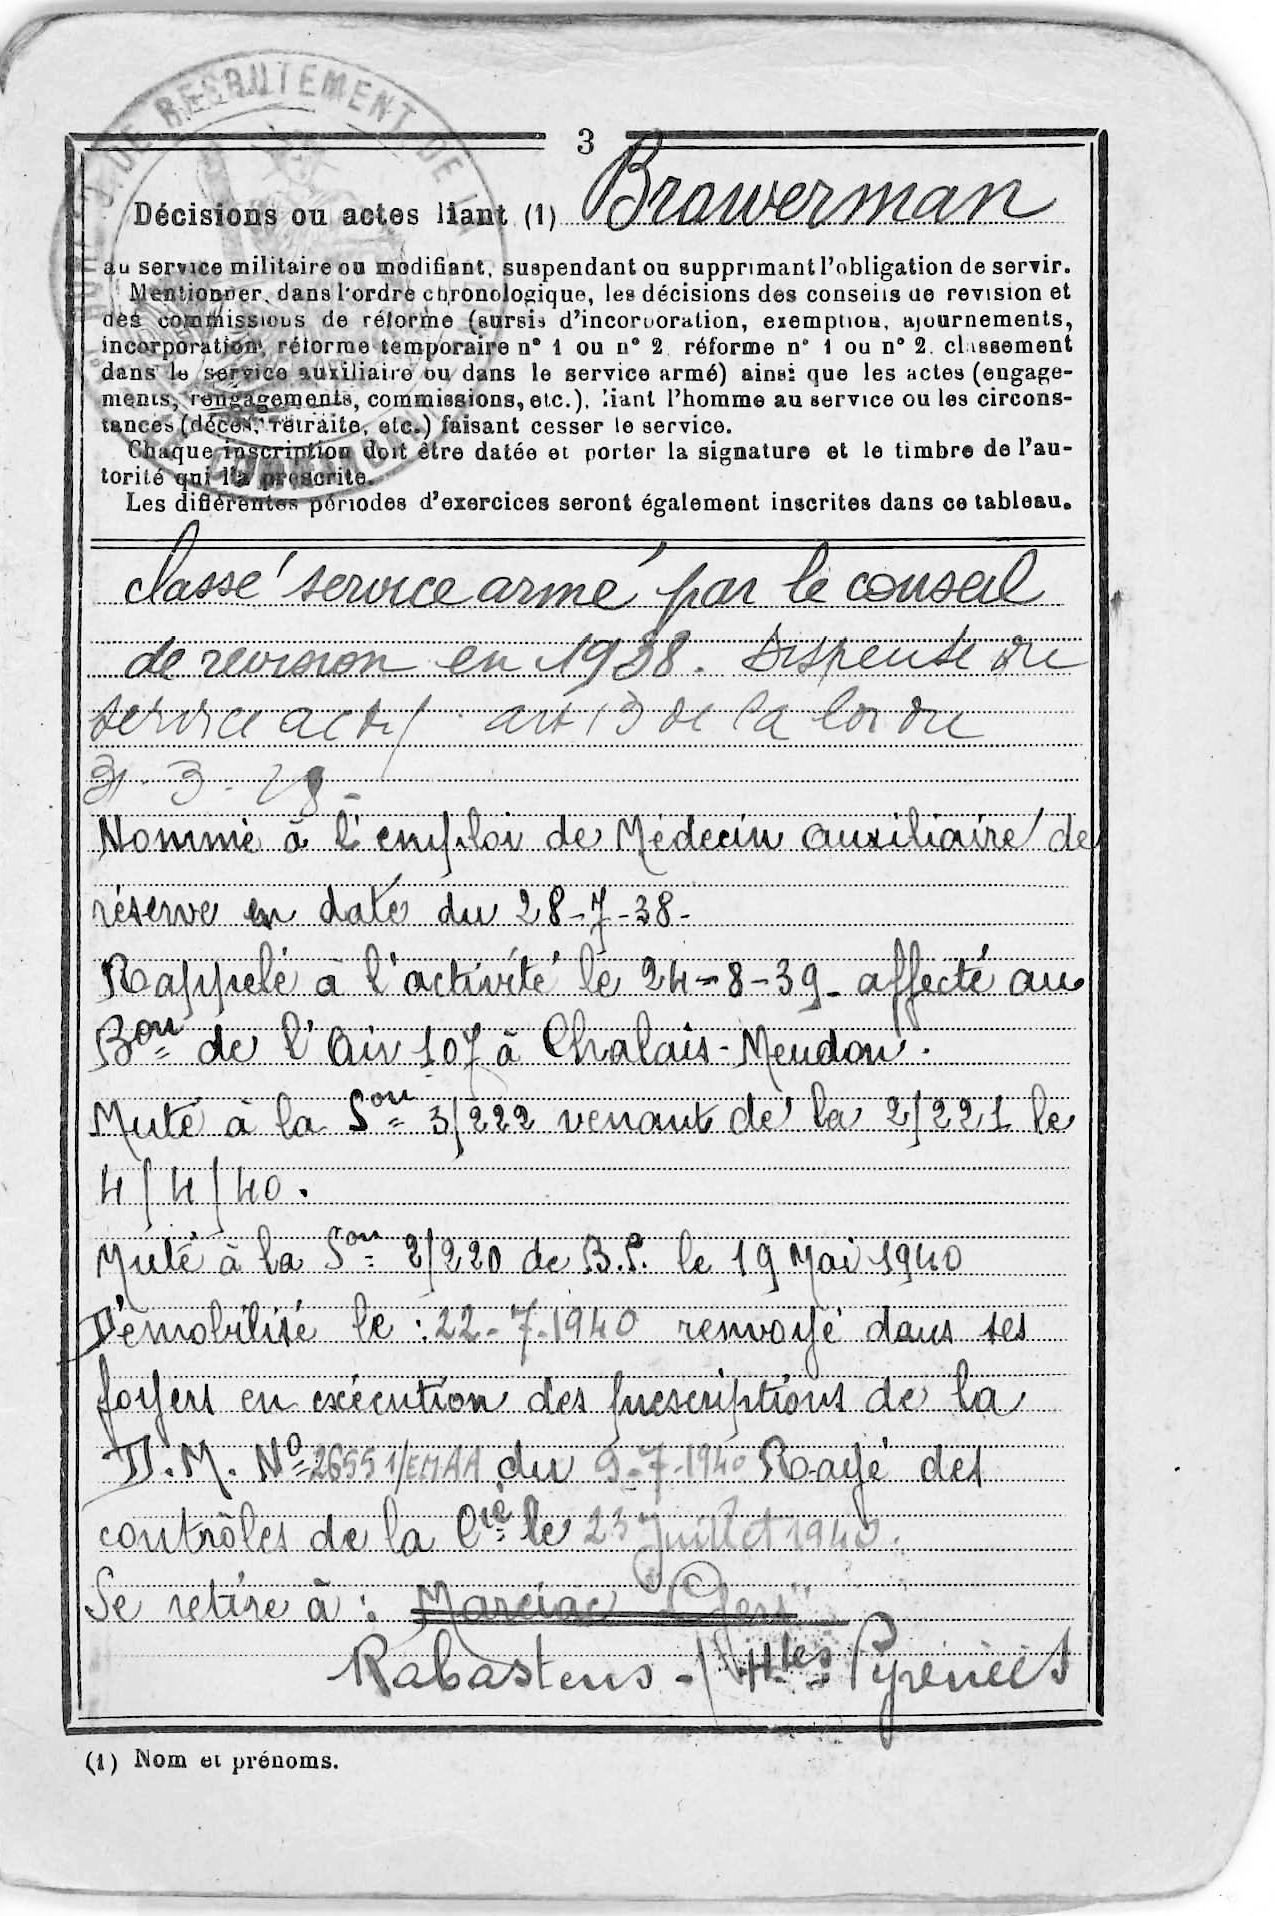 BUR. DE RECRUTEMENT DE LA SEINE
3
Décisions ou actes liant (1) Brawerman
au service militaire ou modifiant, suspendant ou supprimant l'obligation de servir.
Mentionner, dans l'ordre chronologique, les décisions des conseils de revision et
des commissions de réforme (sursis d'incorporation, exemption, ajournements,
incorporation, réforme temporaire n° 1 ou n° 2, réforme n° 1 ou n° 2, classement
dans le service auxiliaire ou dans le service armé) ainsi que les actes (engage-
ments, rengagements, commissions, etc.), liant l'homme au service ou les circons-
tances (décès, retraite, etc.) faisant cesser le service.
Chaque inscription doit être datée et porter la signature et le timbre de l'au-
torité qui l'a prescrite.
Les différentes périodes d'exercices seront également inscrites dans ce tableau.
classé service armé par le conseil
de revision en 1938. Dispensé du
service actif. art 13 de la loi du
31-3-28-
Nommé à l'emploi de Médecin auxiliaire de
réserve en date du 28-7-38-
Rappelé à l'activité le 24-8-39- affecté au
Bon de l'Air 107 à Chalais-Meudon.
Muté à la Son 3/222 venant de la 2/221 le
4/4/40.
Muté à la Son 2/220 de B.P. le 19 Mai 1940
Démobilisé le : 22-7-1940 renvoyé dans ses
foyers en exécution des prescriptions de la
D.M. No 2655 1/EMAA du 9-7-1940 Rayé des
contrôles de la Cie le 23 Juillet 1940.
Se retire à : Marciac (Gers)
Rabastens - Htes Pyrénées
(1) Nom et prénoms.